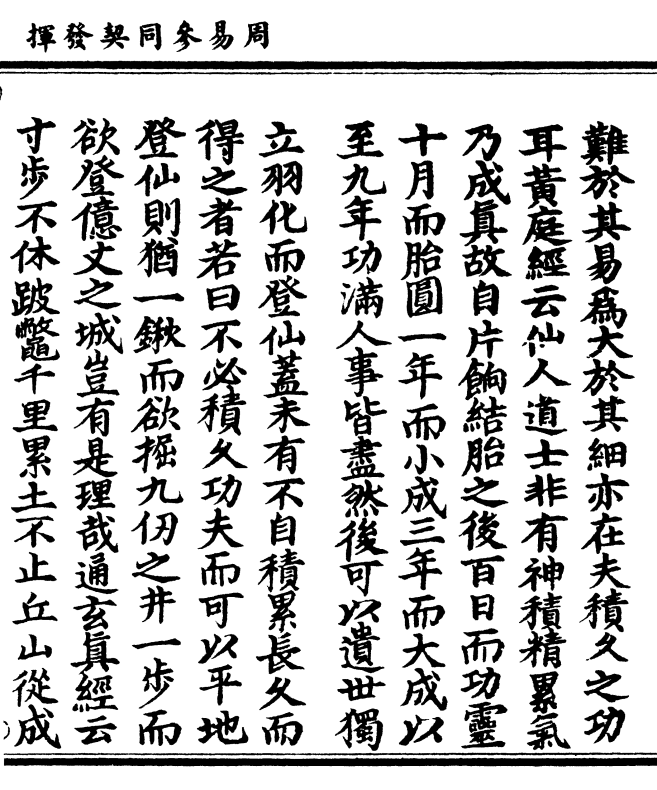 周易參同契發揮
難於其易爲大於其細亦在夫積久之功
耳黃庭經云仙人道士非有神積精累氣
乃成眞故自片餉結胎之後百日而功靈
十月而胎圓一年而小成三年而大成以
至九年功滿人事皆盡然後可以遺世獨
立羽化而登仙蓋未有不自積累長久而
得之者若曰不必積久功夫而可以平地
登仙則猶一鍬而欲掘九仞之井一步而
欲登億丈之城豈有是理哉通玄眞經云
寸步不休跛鼈千里累土不止丘山從成